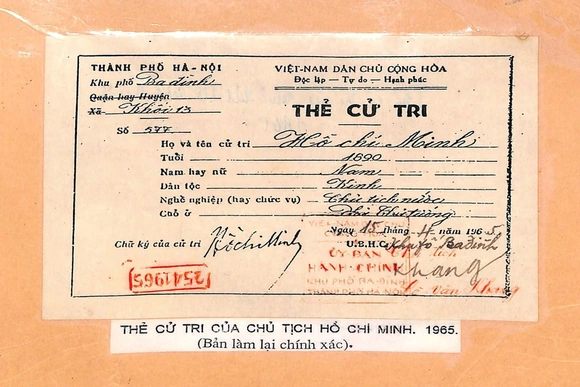 THÀNH PHỐ HÀ-NỘI
Khu phố Ba đình
Quận hay Huyện
Xã Khối 13
Số 577
VIỆT-NAM DÂN CHỦ CỘNG HÒA
Độc lập — Tự do — Hạnh phúc
THẺ CỬ TRI
Họ và tên cử tri Hồ chí Minh
Tuổi 1890
Nam hay nữ Nam
Dân tộc Kinh
Nghề nghiệp (hay chức vụ) Chủ tịch nước
Chỗ ở Phủ Thủ tướng
Ngày 15 tháng 4 năm 1965
U.B.H.C. Khu fố Ba đình
Chữ ký của cử tri HồchíMinh
ỦY BAN
HÀNH CHÍNH
KHU PHỐ BA-ĐÌNH
THÀNH PHỐ HÀ-NỘI
Khang
Văn Khang
(2541965)
THẺ CỬ TRI CỦA CHỦ TỊCH HỒ CHÍ MINH. 1965.
(Bản làm lại chính xác).